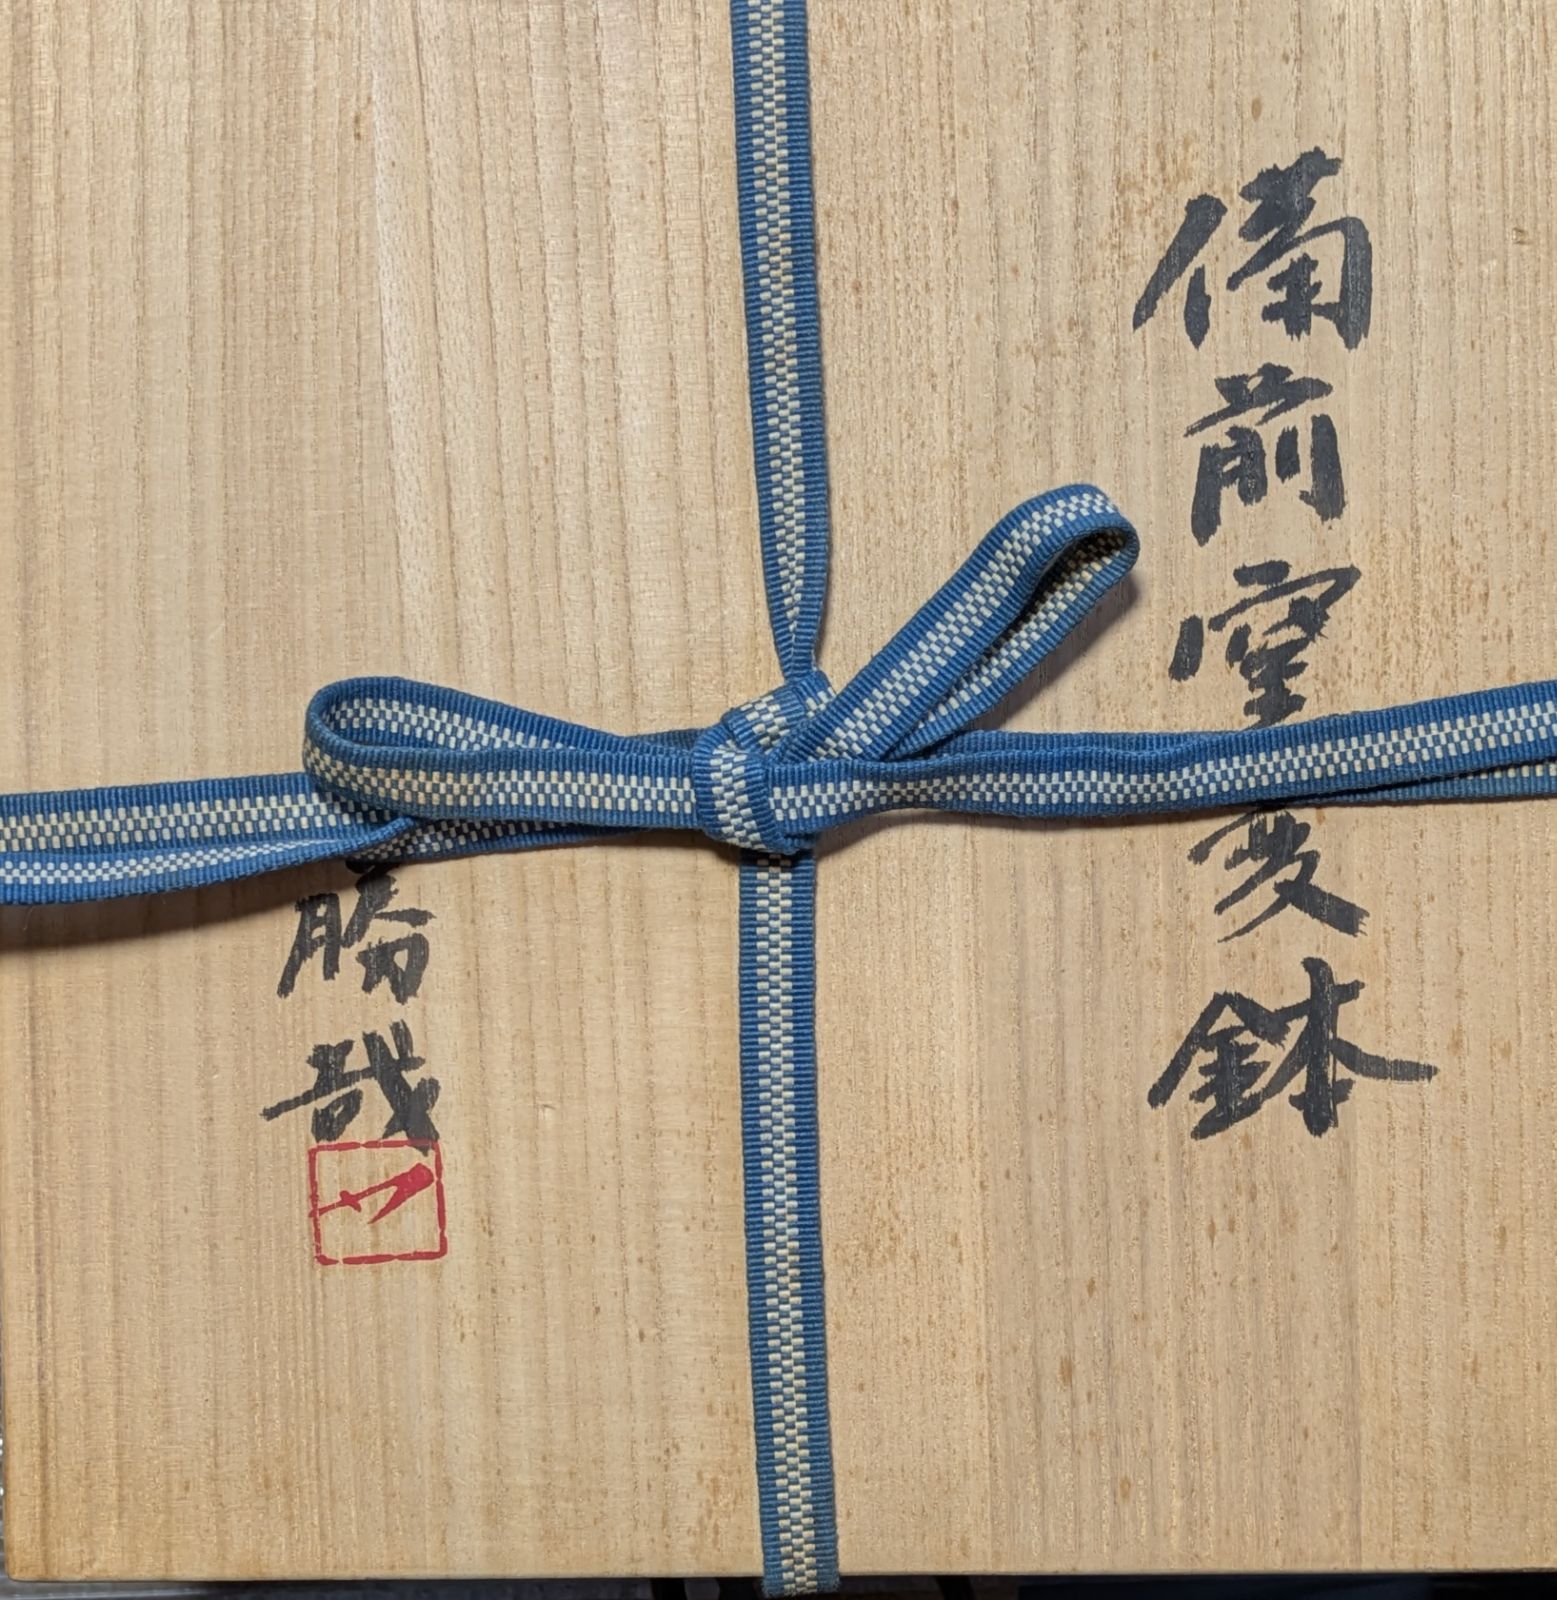 備前窯変鉢
勝哉